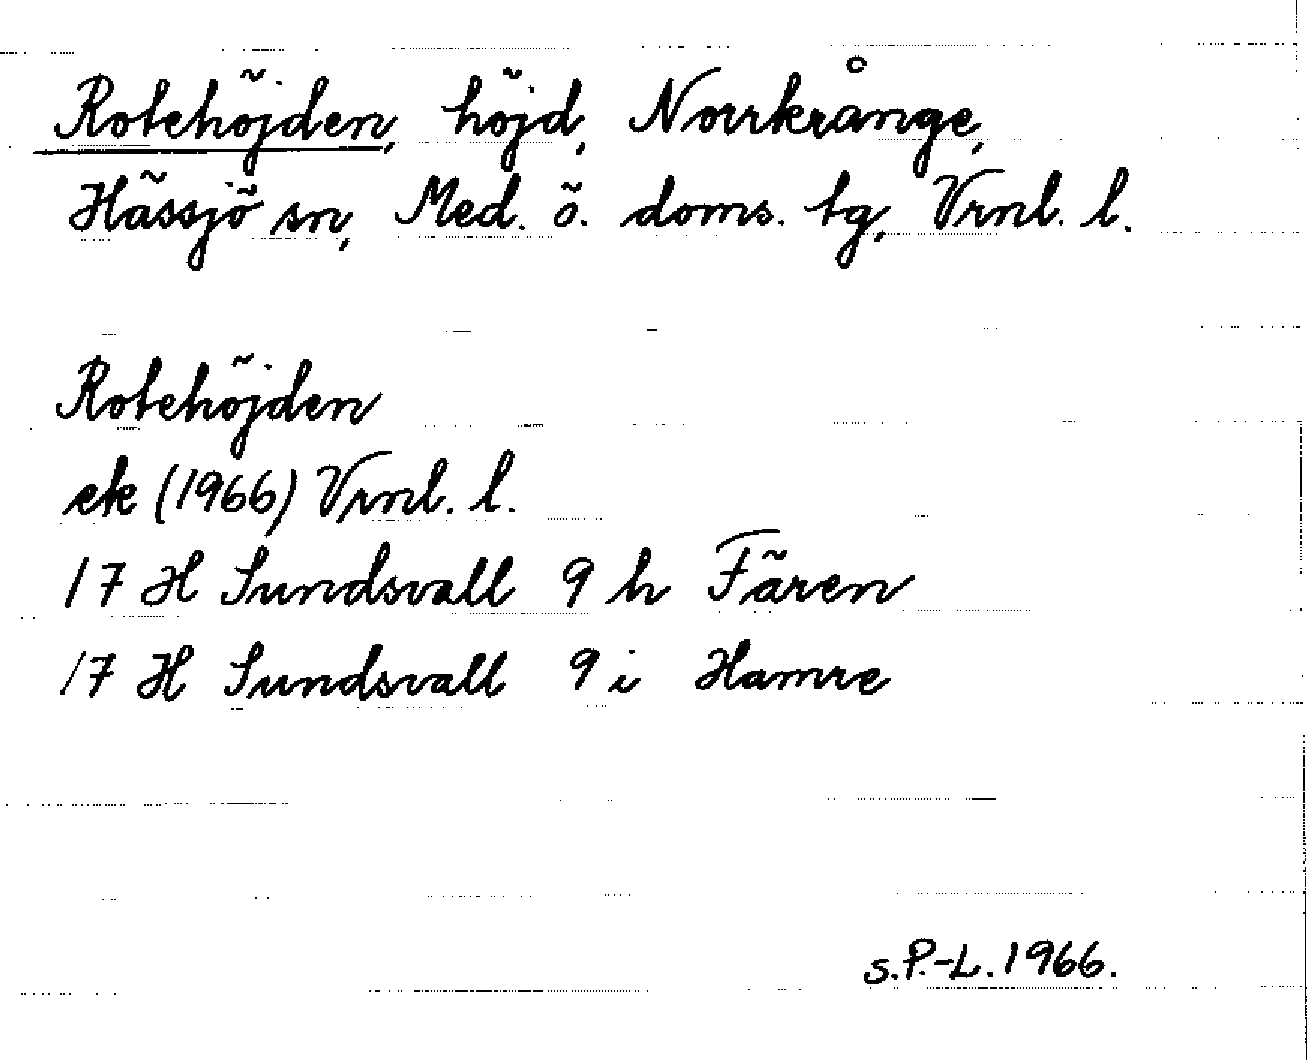 Rotehöjden, höjd, Norrkrånge,
Hässjö sn, Med. ö. doms. tg, Vrnl. l.
Rotehöjden
ek (1966) Vrnl. l.
17 H Sundsvall 9 h Fären
17 H Sundsvall 9 i Hamre
s.P.-L. 1966.